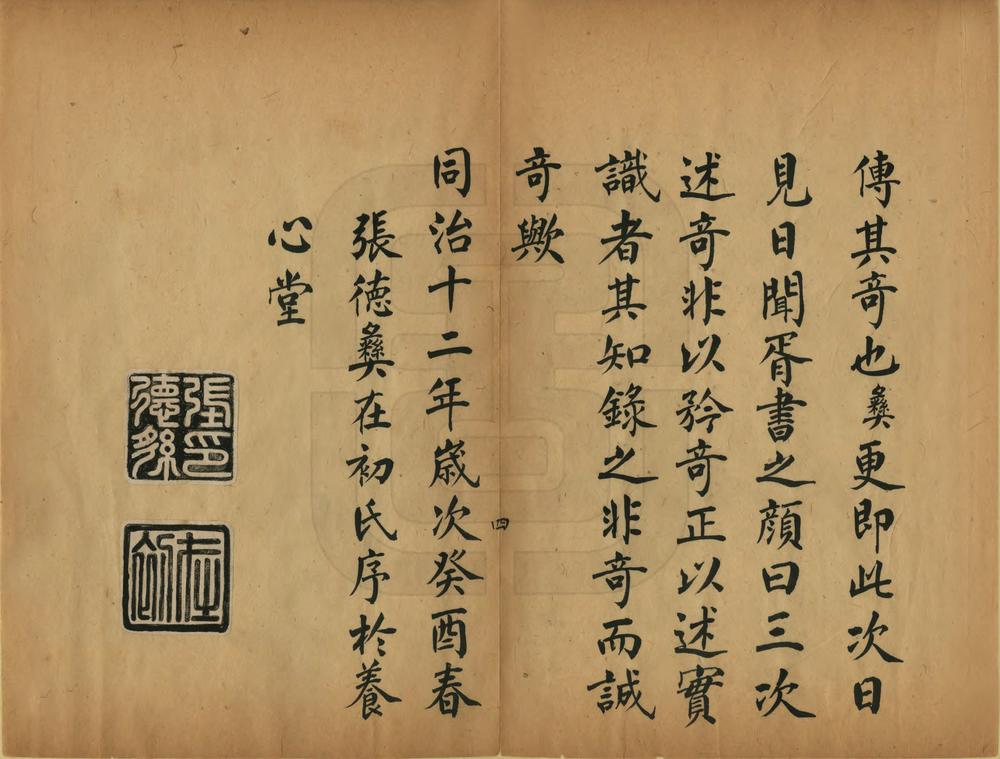 傳其竒也彝更即此次日
見日聞胥書之顔曰三次
述竒非以矜竒正以述實
識者其知錄之非竒而誠
竒歟
同治十二年歲次癸酉春
張德彝在初氏序於養
心堂
四
張印德彝
在初